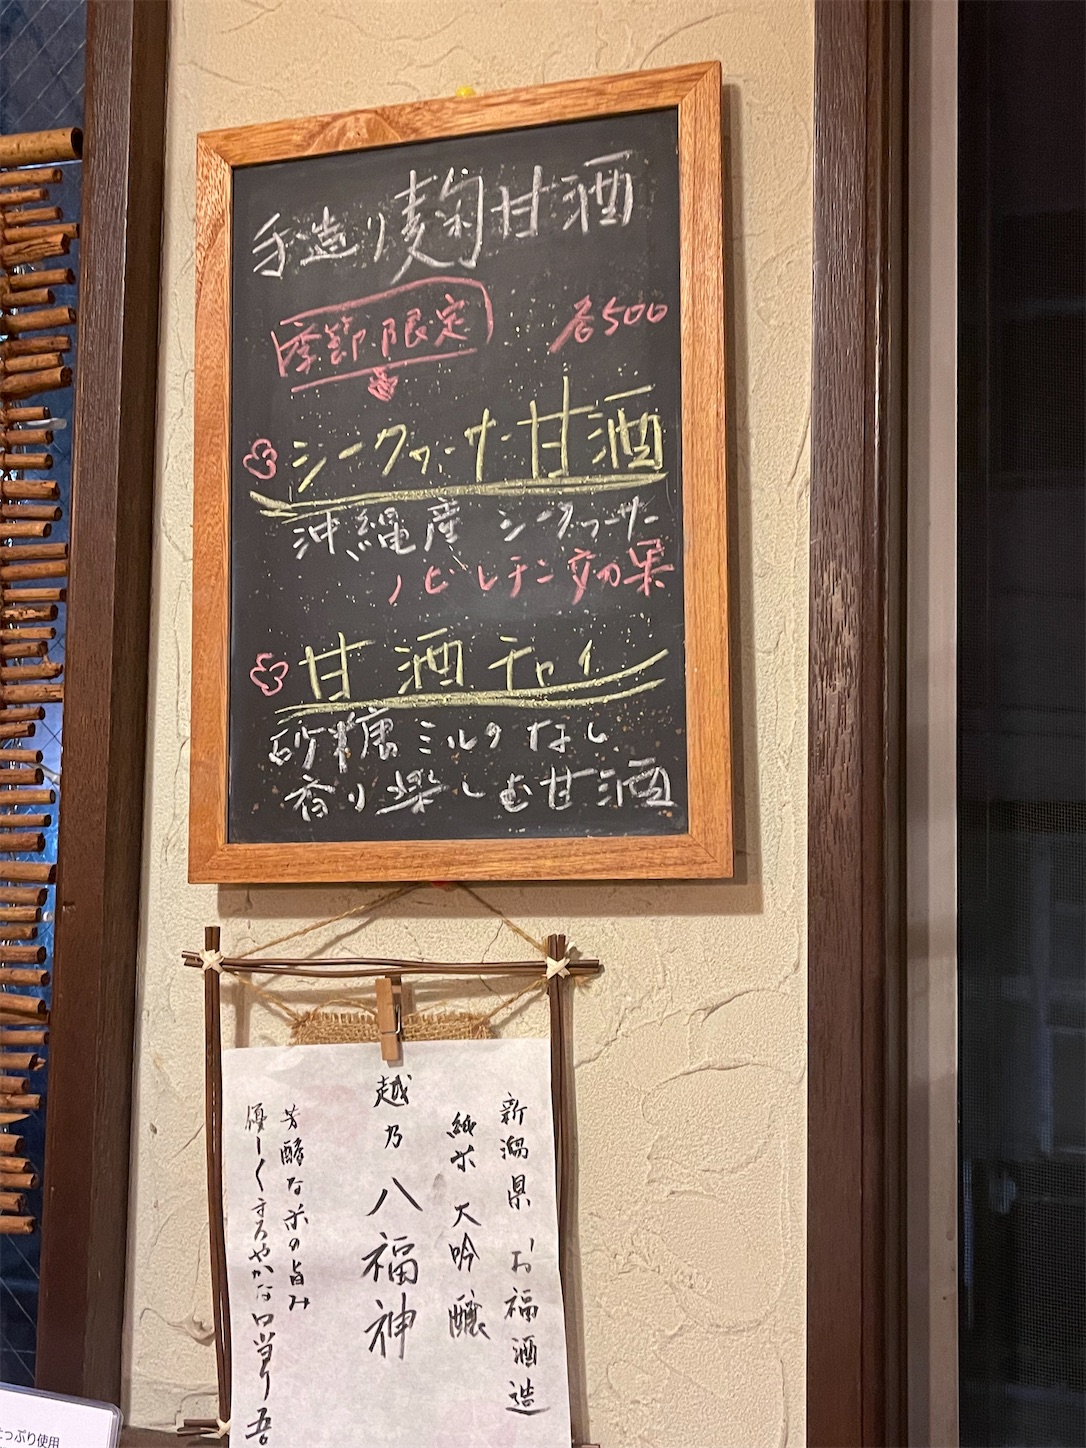 手造り麹甘酒
季節限定
各500
シークヮーサー甘酒
沖縄産 シークヮーサー
ノビレチン効果
甘酒チャイ
砂糖ミルクなし
香り楽しむ甘酒
新潟県 お福酒造
純米 大吟醸
越乃 八福神
芳醇な米の旨み
優しくまろやかな口当り
たっぷり使用